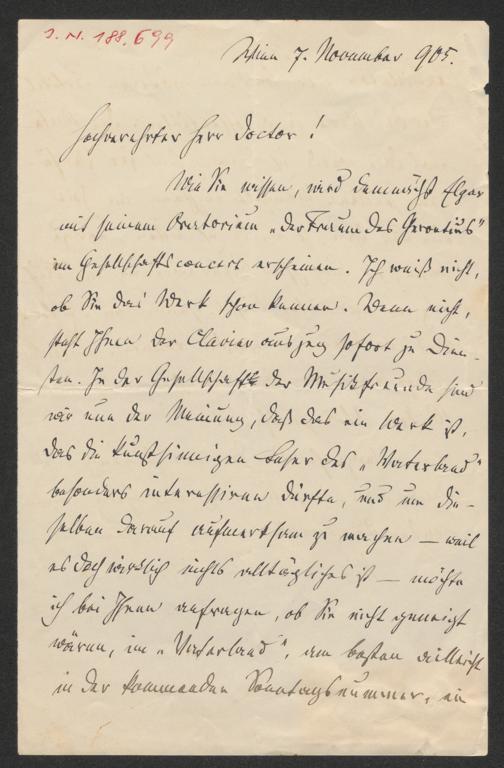 J. N. 188.699
Wien 7. November 905.
Hochverehrter Herr Doctor!
Wie Sie wissen, wird demnächst Elgar
mit seinem Oratorium „Der Traum des Gerontius"
im Gesellschaftsconcert erscheinen. Ich weiß nicht,
ob Sie das Werk schon kennen. Wenn nicht,
steht Ihnen der Clavierauszug sofort zu Dien-
sten. In der Gesellschaft der Musikfreunde sind
wir nun der Meinung, daß das ein Werk ist,
das die kunstsinnigen Leser des „Vaterland"
besonders interessiren dürfte, und um die-
selben darauf aufmerksam zu machen – weil
es doch wirklich nichts alltägliches ist – möchte
ich bei Ihnen anfragen, ob Sie nicht geneigt
wären, im „Vaterland", am besten vielleicht
in der kommenden Sonntagsnummer, ein